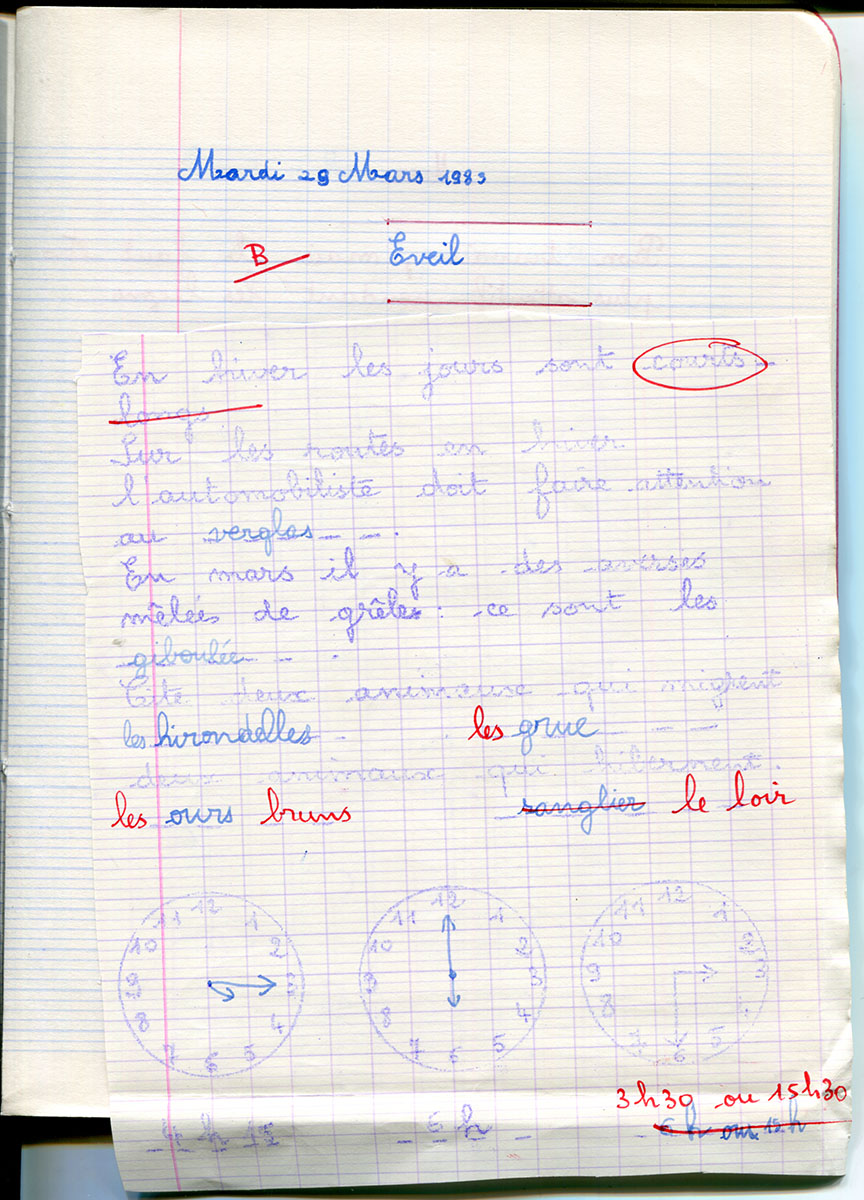 Mardi 29 Mars 1983
B Eveil
En hiver les jours sont courts -
longs
Sur les routes en hiver
l'automobiliste doit faire attention
au verglas - - .
En mars il y a des averses
mêlées de grêle : ce sont les
giboulée - - .
Cite deux animaux qui migrent
les hirondelles - . les grue - - -
deux animaux qui hibernent.
les ours bruns sanglier le loir
12 1 2 3 4 5 6 7 8 9 10 11
12 1 2 3 4 5 6 7 8 9 10 11
12 1 2 3 5 6 7 8 9 10 11
3h30 ou 15h30
4 h 15 6 h 6 h ou 12 h